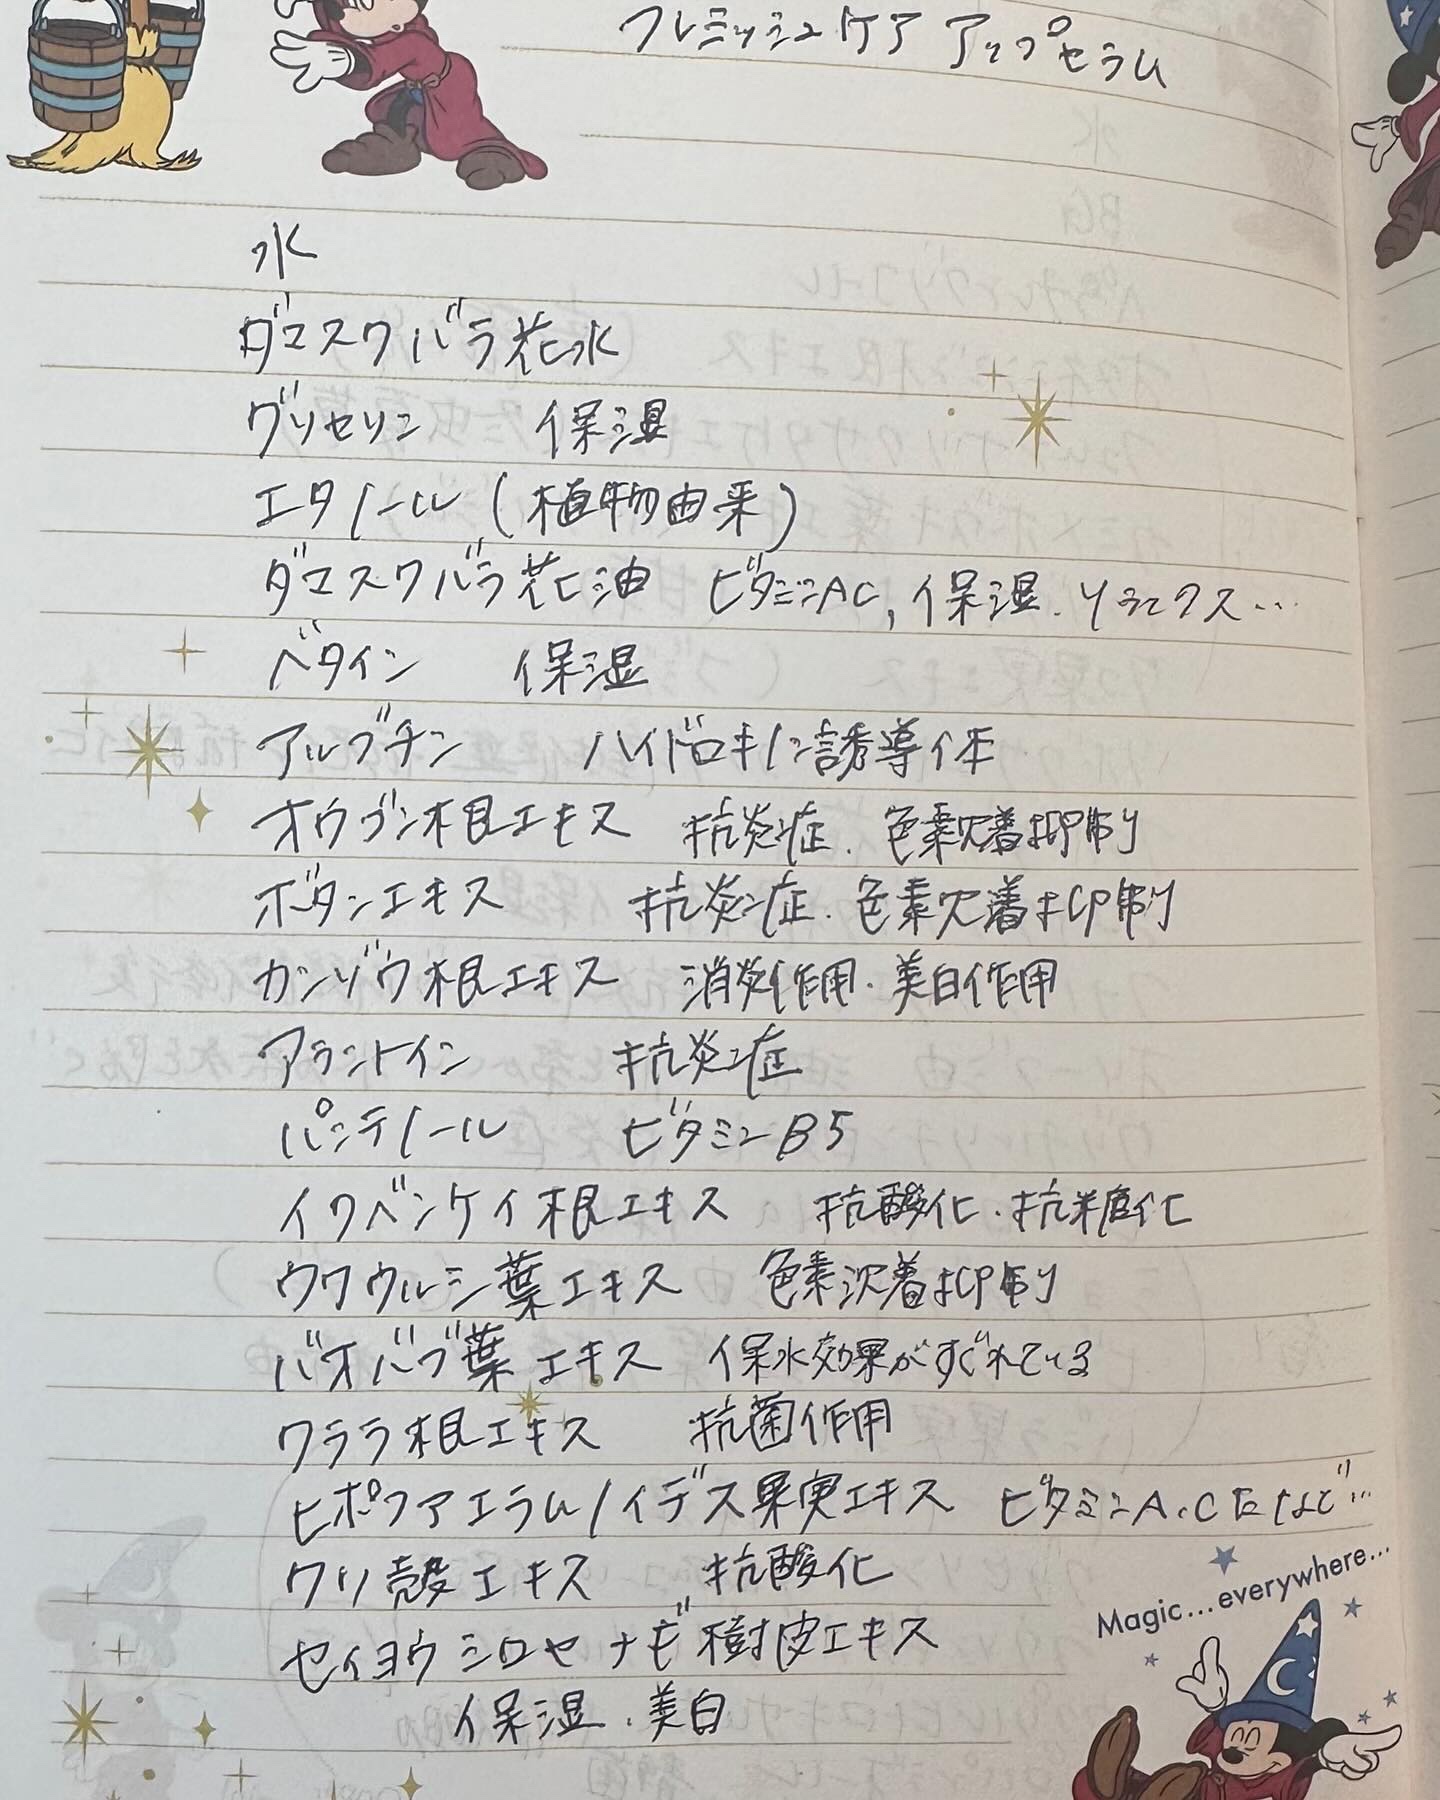 フレミッシュケア アップセラム
水
ダマスクバラ花水
グリセリン 保湿
エタノール (植物由来)
ダマスクバラ花油 ビタミンAC, 保湿. リラックス…
ベタイン 保湿
アルブチン ハイドロキノン誘導体
オウゴン根エキス 抗炎症. 色素沈着抑制
ボタンエキス 抗炎症. 色素沈着抑制
カンゾウ根エキス 消炎作用. 美白作用
アラントイン 抗炎症
パンテノール ビタミンB5
イワベンケイ根エキス 抗酸化. 抗糖化
ウワウルシ葉エキス 色素沈着抑制
バオバブ葉エキス 保水効果がすぐれている
クララ根エキス 抗菌作用
ヒポファエラムノイデス果実エキス ビタミンA.C
クリ殻エキス 抗酸化
セイヨウシロヤナギ樹皮エキス
保湿. 美白
Magic...everywhere...